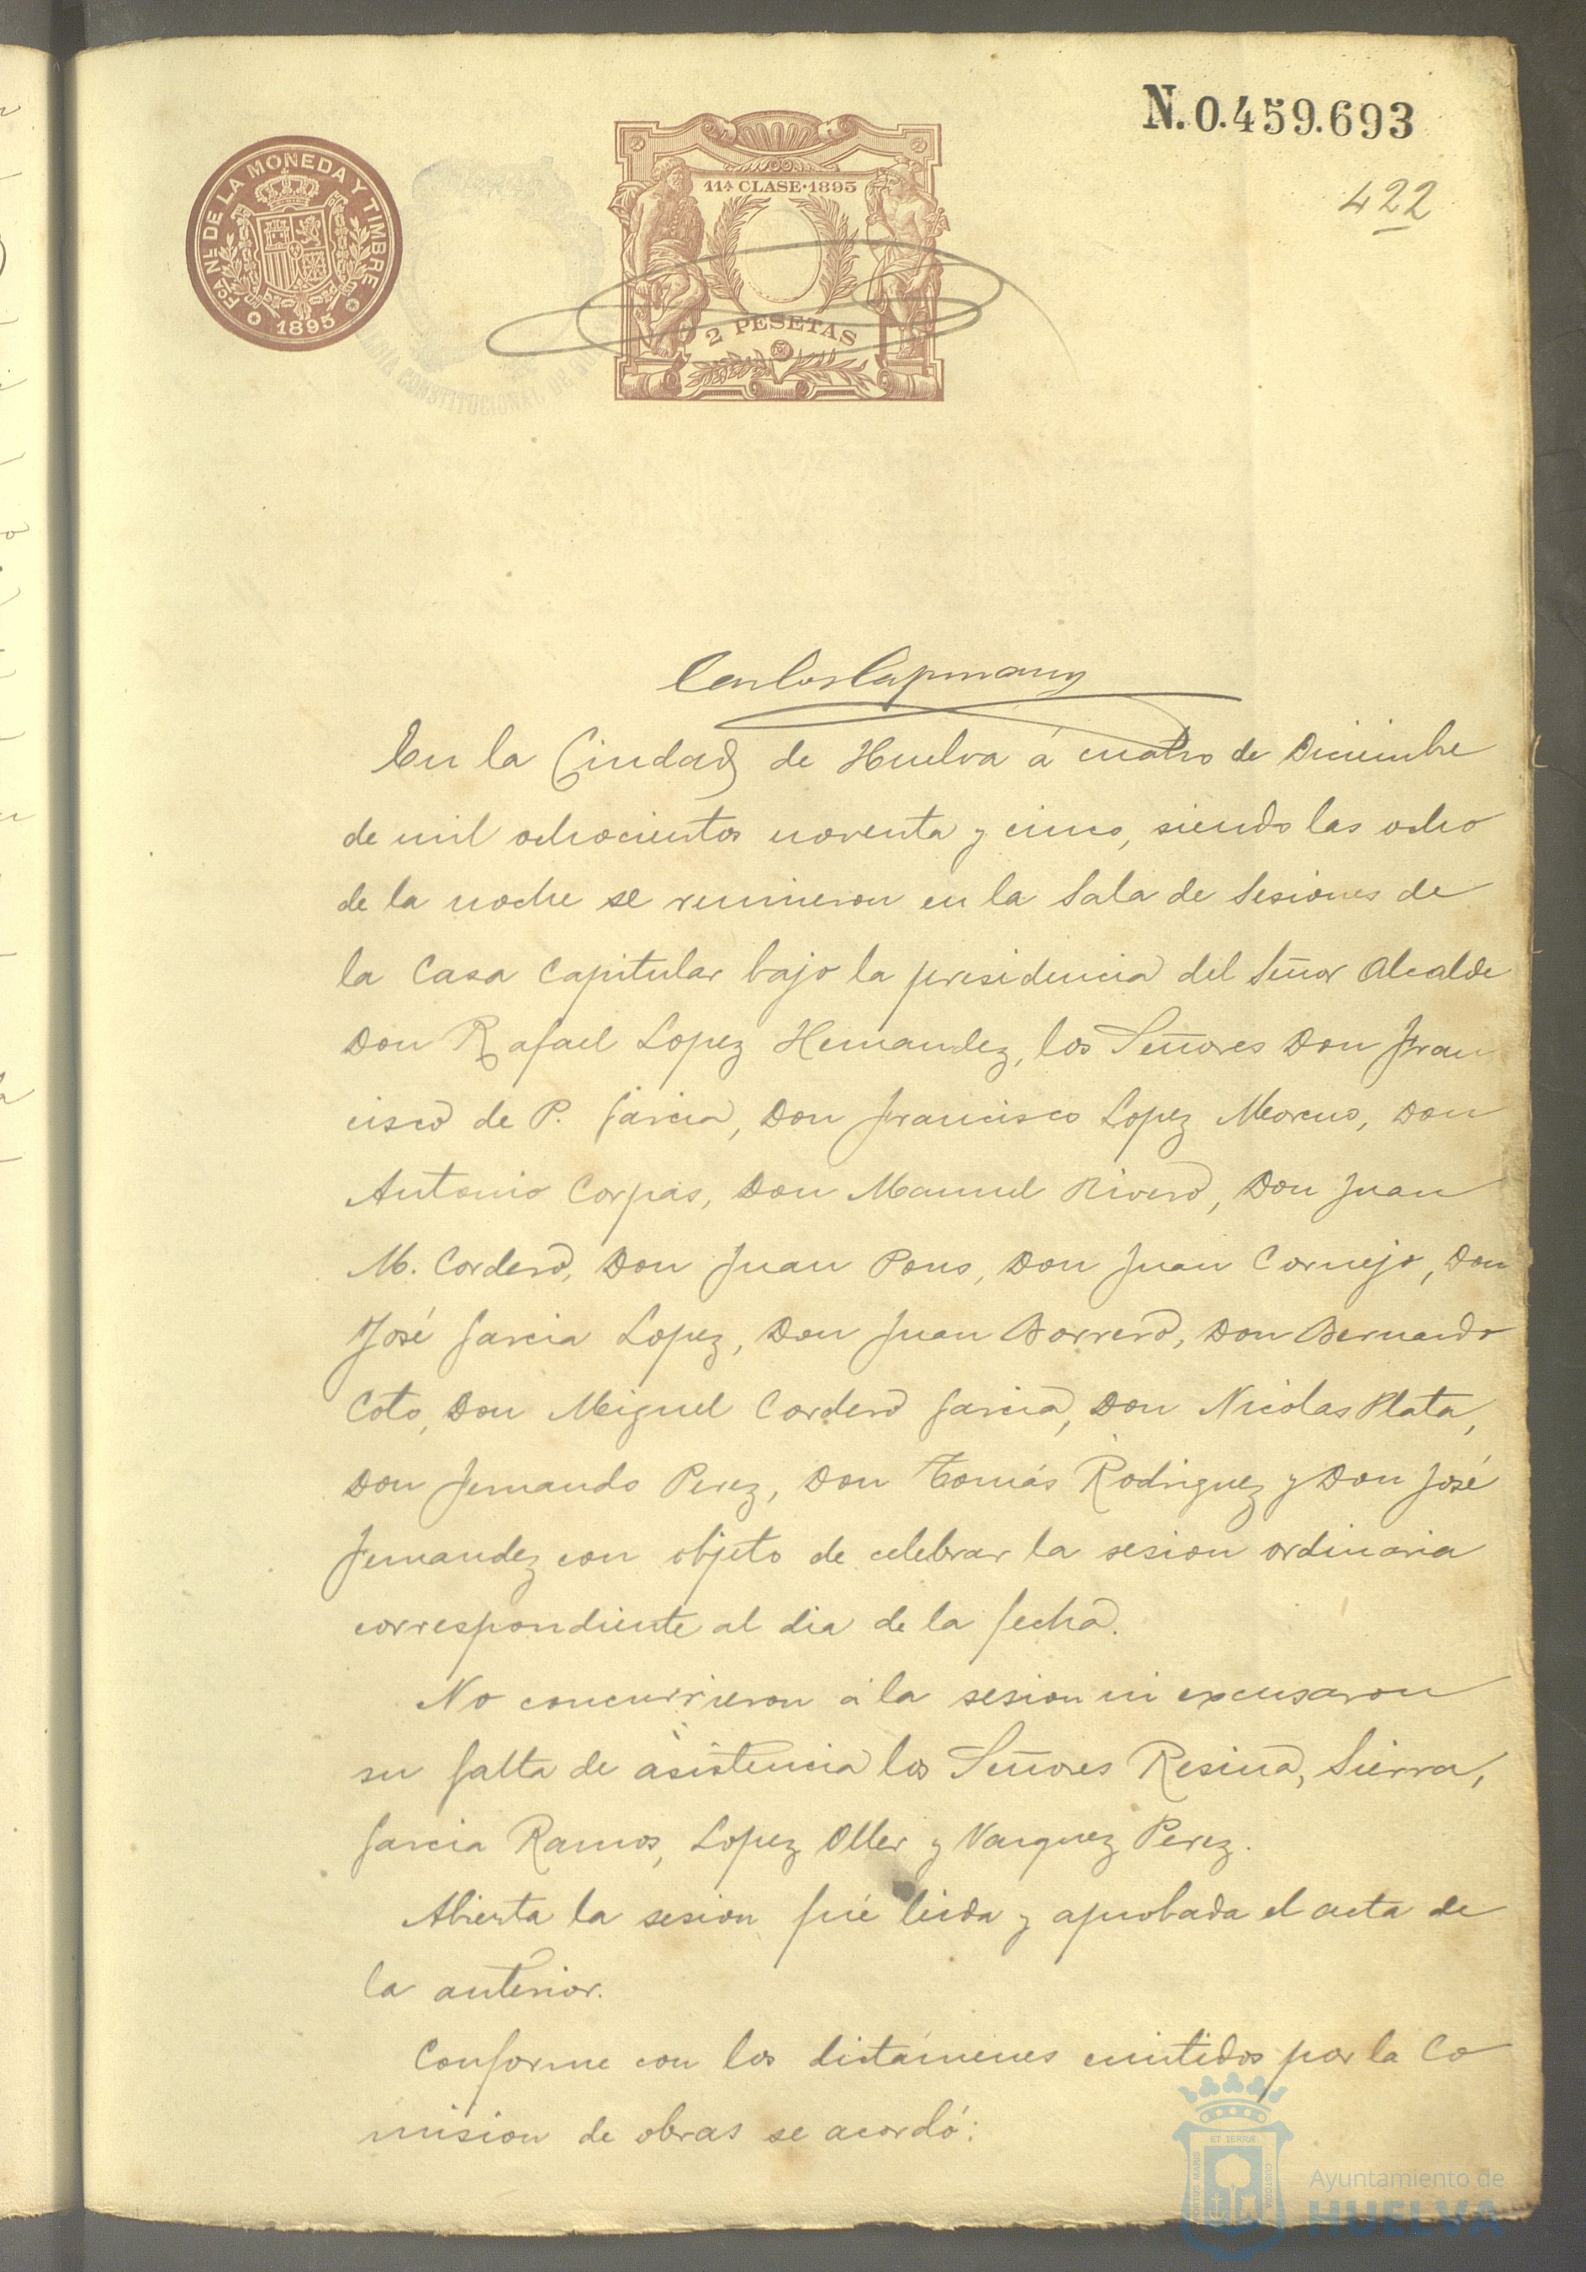 N.0.459.693
422
FCA NL DE LA MONEDA Y TIMBRE
1895
11ª CLASE·1895
2 PESETAS
CONSTITUCIONAL DE
Carlos Capmany
En la Ciudad de Huelva á cuatro de Diciembre
de mil ochocientos noventa y cinco, siendo las ocho
de la noche se reunieron en la Sala de Sesiones de
la Casa Capitular bajo la presidencia del Señor Alcalde
Don Rafael Lopez Hernandez, los Señores Don Fran
cisco de P. Garcia, Don Francisco Lopez Moreno, Don
Antonio Corpas, Don Manuel Rivero, Don Juan
M. Cordero, Don Juan Pons, Don Juan Cornejo, Don
José Garcia Lopez, Don Juan Borrero, Don Bernardo
Coto, Don Miguel Cordero Garcia, Don Nicolas Plata,
Don Fernando Perez, Don Tomás Rodriguez y Don José
Fernandez con objeto de celebrar la sesion ordinaria
correspondiente al dia de la fecha.
No concurrieron á la sesion ni excusaron
su falta de asistencia los Señores Resina, Sierra,
Garcia Ramos, Lopez Oller y Vazquez Perez.
Abierta la sesion fué leida y aprobada el acta de
la anterior.
Conforme con los dictámenes emitidos por la Co
mision de obras se acordó:
PORTUS MARIS ET TERRÆ CUSTODIA
Ayuntamiento de
HUELVA